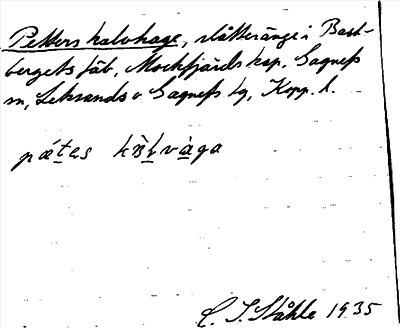 Petters kalvhage, slåtteränge i Bast-
bergets fäb, Mockfjärds kap, Gagnefs
sn, Leksands o Gagnefs tg, Kopp. l.
pǽtas
C. I. Ståhle 1935